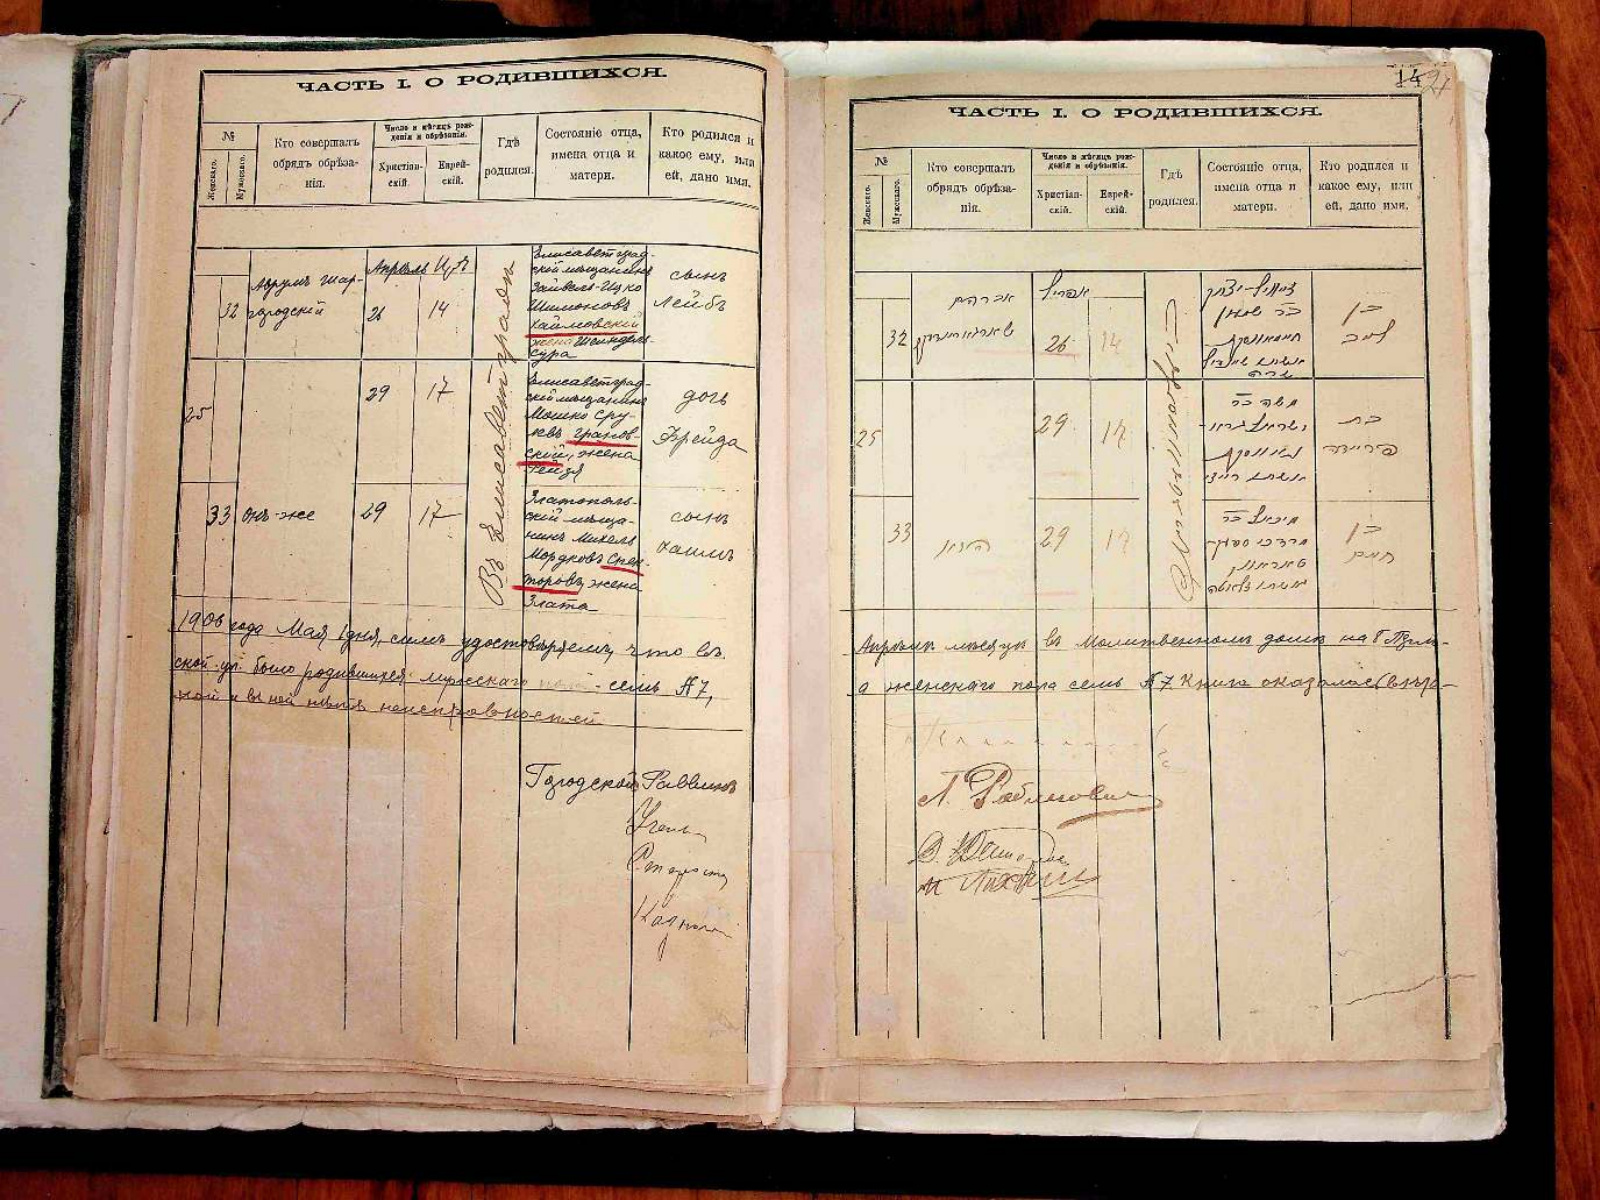 ЧАСТЬ I. О РОДИВШИХСЯ.
№
Женскаго.
Мужескаго.
Кто совершалъ
обрядъ обрѣза-
нія.
Число и мѣсяцъ рож-
денія и обрѣзанія.
Христіан-
скій.
Еврей-
скій.
Гдѣ
родился.
Состояніе отца,
имена отца и
матери.
Кто родился и
какое ему, или
ей, дано имя.
32
Аврумъ Шар-
городскій
Апрѣль
26
14
Въ Елисаветградѣ
Елисаветград-
скій мѣщанинъ
Зайвель-Ицко
Шимоновъ
Хаимовскій
жена Шейндель-
Сура
сынъ
Лейбъ
25
29
17
Елисаветград-
скій мѣщанинъ
Мошко Сру-
левъ Гранов-
скій, жена
Рейзя
дочь
Фрейда
33
онъ-же
29
17
Златополь-
скій мѣща-
нинъ Михель
Мордковъ Спек-
торовъ, жена
Злата
сынъ
Хаимъ
1906 года Мая 1 дня, симъ удостовѣряемъ, что въ
ской ул. было родившихся мужескаго пола - семь № 7,
ной и въ ней нѣтъ неисправностей
Городской Раввинъ
Учен
Староста
Казначей
14
ЧАСТЬ I. О РОДИВШИХСЯ.
№
Женскаго.
Мужескаго.
Кто совершалъ
обрядъ обрѣза-
нія.
Число и мѣсяцъ рож-
денія и обрѣзанія.
Христіан-
скій.
Еврей-
скій.
Гдѣ
родился.
Состояніе отца,
имена отца и
матери.
Кто родился и
какое ему, или
ей, дано имя.
32
אברהם
שארגאראדסקי
אפריל
26
14
בר שמעון
שרה
בן
לייב
25
29
17
משה בר
ישראל גראנ-
אשתו רייזי
בת
פריידה
33
הנ״ל
29
17
מיכאל בר
מרדכי ספעק-
טאראוו
אשתו זלאטה
בן
חיים
Апрѣлѣ мѣсяцѣ въ Молитвенномъ домѣ на
а женскаго пола семь № 7. Книга оказалась вѣр-
Л. Рабинович